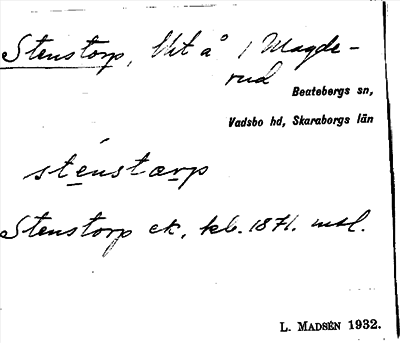 Stenstorp, Utå / Magde-
rud
Beatebergs sn,
Vadsbo hd, Skaraborgs län
sténstœrp
Stenstorp ek. kb. 1871. msl.
L. MADSÉN 1932.